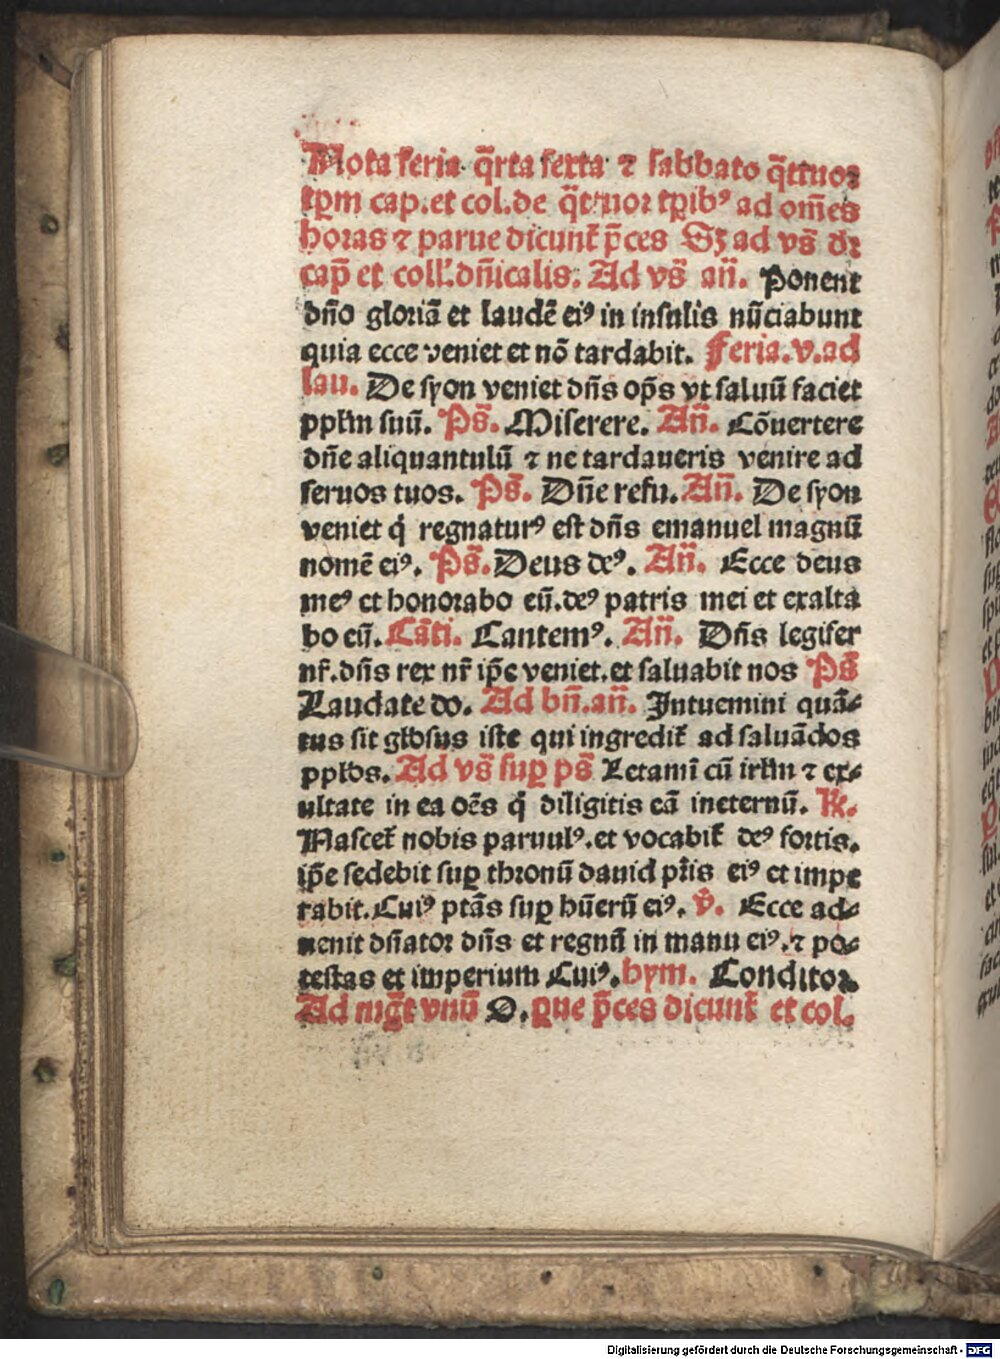 Nota feria q̄rta sexta ⁊ sabbato q̄ttuor
tꝑm cap. et col. de q̄ttuor tꝑibꝰ ad om̄es
horas ⁊ parue dicunt᷑ p̄ces Sꝫ ad vs̄ dꝛ
cap̄ et coll'. dn̄icalis. Ad vs̄ an̄. Ponent
dn̄o gloriā et laudē eiꝰ in insulis nūciabunt
quia ecce veniet et nō tardabit. Feria. v. ad
lau. De syon veniet dn̄s op̄s vt saluū faciet
ppl'm suū. Ps̄. Miserere. An̄. Cōuertere
dn̄e aliquantulū ⁊ ne tardaueris venire ad
seruos tuos. Ps̄. Dn̄e refu. An̄. De syon
veniet q̇ regnaturꝰ est dn̄s emanuel magnū
nomē eiꝰ. Ps̄. Deus deꝰ. An̄. Ecce deus
meꝰ et honorabo eū. deꝰ patris mei et exalta
bo eū. Cāti. Cantemꝰ. An̄. Dn̄s legifer
nr̄. dn̄s rex nr̄ ip̄e veniet. et saluabit nos Ps̄
Laudate do. Ad bn̄. an̄. Intuemini quā⸗
tus sit gl'osus iste qui ingredit᷑ ad saluādos
ppl'os. Ad vs̄ suꝑ ps̄ Letamī cū irl'm ⁊ ex⸗
ultate in ea oēs q̇ diligitis eā ineternū. R̄.
Nascet᷑ nobis paruulꝰ. et vocabit᷑ deꝰ fortis.
ip̄e sedebit suꝑ thronū dauid pr̄is eiꝰ et impe
rabit. Cuiꝰ ptās suꝑ hūerū eiꝰ. v̄. Ecce ad⸗
uenit dn̄ator dn̄s et regnū in manu eiꝰ. ⁊ po⸗
testas et imperium Cuiꝰ. hym. Conditor.
Ad mgt̄ vnū O. que p̄ces dicunt᷑ et col.
Digitalisierung gefördert durch die Deutsche Forschungsgemeinschaft - DFG